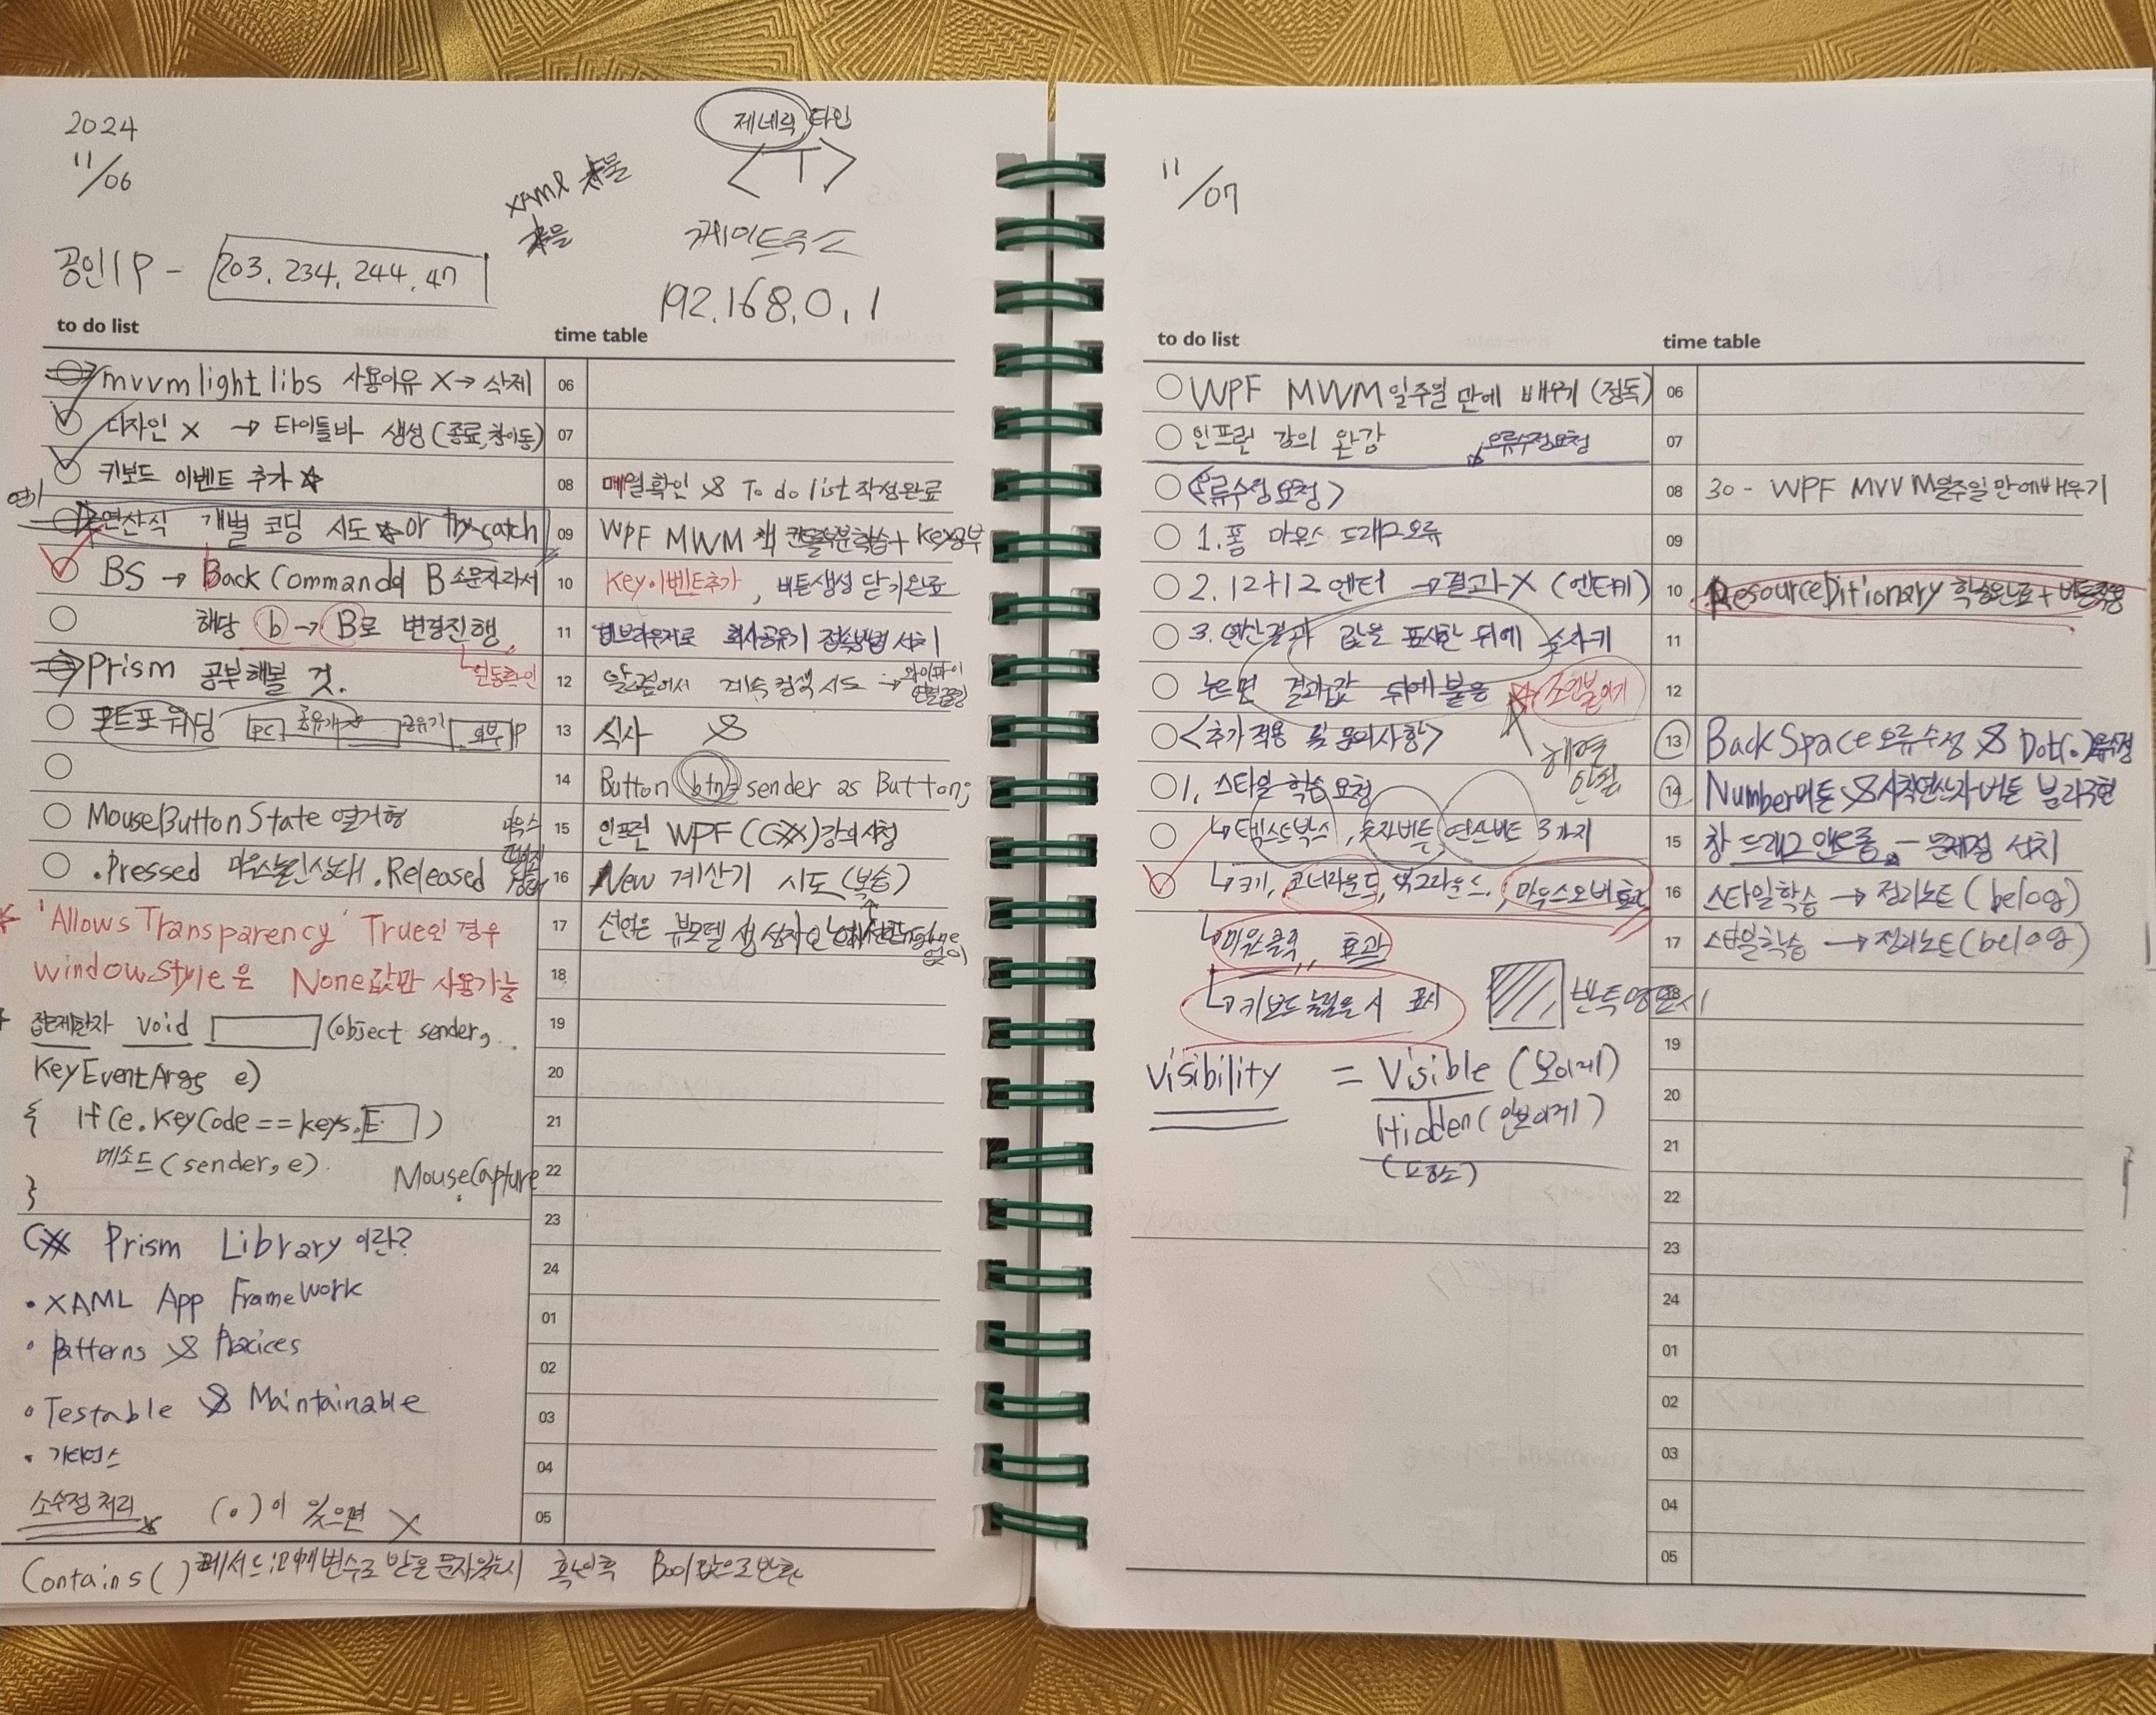 2024
11/06
제네릭 타입
<T>
XAML
공인IP - 203.234.244.47
게이트주소
192.168.0.1
to do list
time table
mvvm light libs 사용이유 X → 삭제
디자인 X → 타이틀바 생성(종료,창이동)
키보드 이벤트 추가 ☆
연기
연산식 개별 코딩 시도 or try-catch
BS → Back Command의 B 소문자라서
해당 b → B로 변경진행
원동확인
Prism 공부해볼 것.
포트포워딩 PC 공유기 공유기 외부IP
MouseButtonState 열거형
.Pressed 마우스눌린상태 .Released 마우스
'Allows Transparency' True인 경우
Window.Style은 None값만 사용가능
접근제한자 void (object sender,
KeyEventArgs e)
{ If(e.KeyCode == keys.E )
메소드(sender, e)
MouseCapture
}
C# Prism Library 이란?
• XAML App FrameWork
• Patterns & Pracices
• Testable & Maintainable
• 가이던스
소수점 처리 (.)이 있으면 X
Contains() 메서드 매개변수로 받은 문자 확인후 Bool값으로 반환
06
07
08 메일확인 & To do list 작성완료
09 WPF MVVM 책 학습 + Key공부
10 Key이벤트추가, 버튼생성 닫기완료
11 웹브라우저로 회사공유기 접속방법 서치
12 계속 검색 시도 → 와이파이
13 식사 &
14 Button btn = sender as Button;
15 인프런 WPF(C#)강의시청
16 New 계산기 시도(복습)
17 선언은 뷰모델 생성자
18
19
20
21
22
23
24
01
02
03
04
05
11/07
to do list
time table
WPF MVVM 일주일 만에 배우기 (정독)
인프런 강의 완강 오류수정요청
<오류수정요청>
1. 폼 마우스 드래그오류
2. 12+12 엔터 → 결과 X (엔터키)
3. 연산결과 값을 표시한 뒤에 숫자키
누르면 결과값 뒤에 붙음 ☆ 조언붙이기
<추가적용 및 문의사항>
1. 스타일 학습 요청
↳ 텍스트박스, 숫자버튼, 연산버튼 3가지
↳ 크기, 코너라운드, 백그라운드, 마우스오버 효과
↳ 마우스클릭, 효과
↳ 키보드 눌렸을 시 표시
반투명
Visibility = Visible (보이게)
Hidden (안보이게)
06
07
08 30 - WPF MVVM일주일 만에배우기
09
10 ResourceDitionary 학습완료 + 버튼적용
11
12
13 BackSpace 오류수정 & Dot(.)수정
14 Number버튼 & 사칙연산자 버튼 분리구현
15 창 드래그 앤 드롭 - 문제점 서치
16 스타일학습 → 정리노트(belog)
17 스타일학습 → 정리노트(belog)
18
19
20
21
22
23
24
01
02
03
04
05